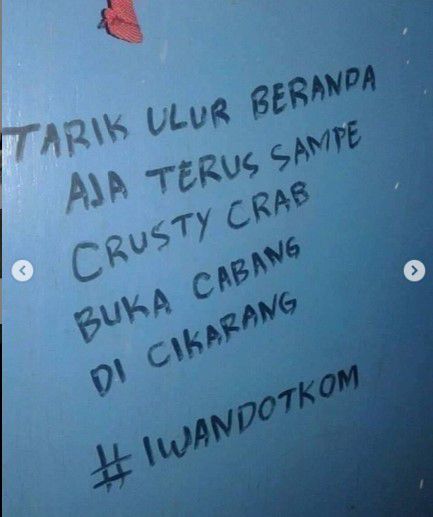 TARIK ULUR BERANDA
AJA TERUS SAMPE
CRUSTY CRAB
BUKA CABANG
DI CIKARANG
#IWANDOTKOM